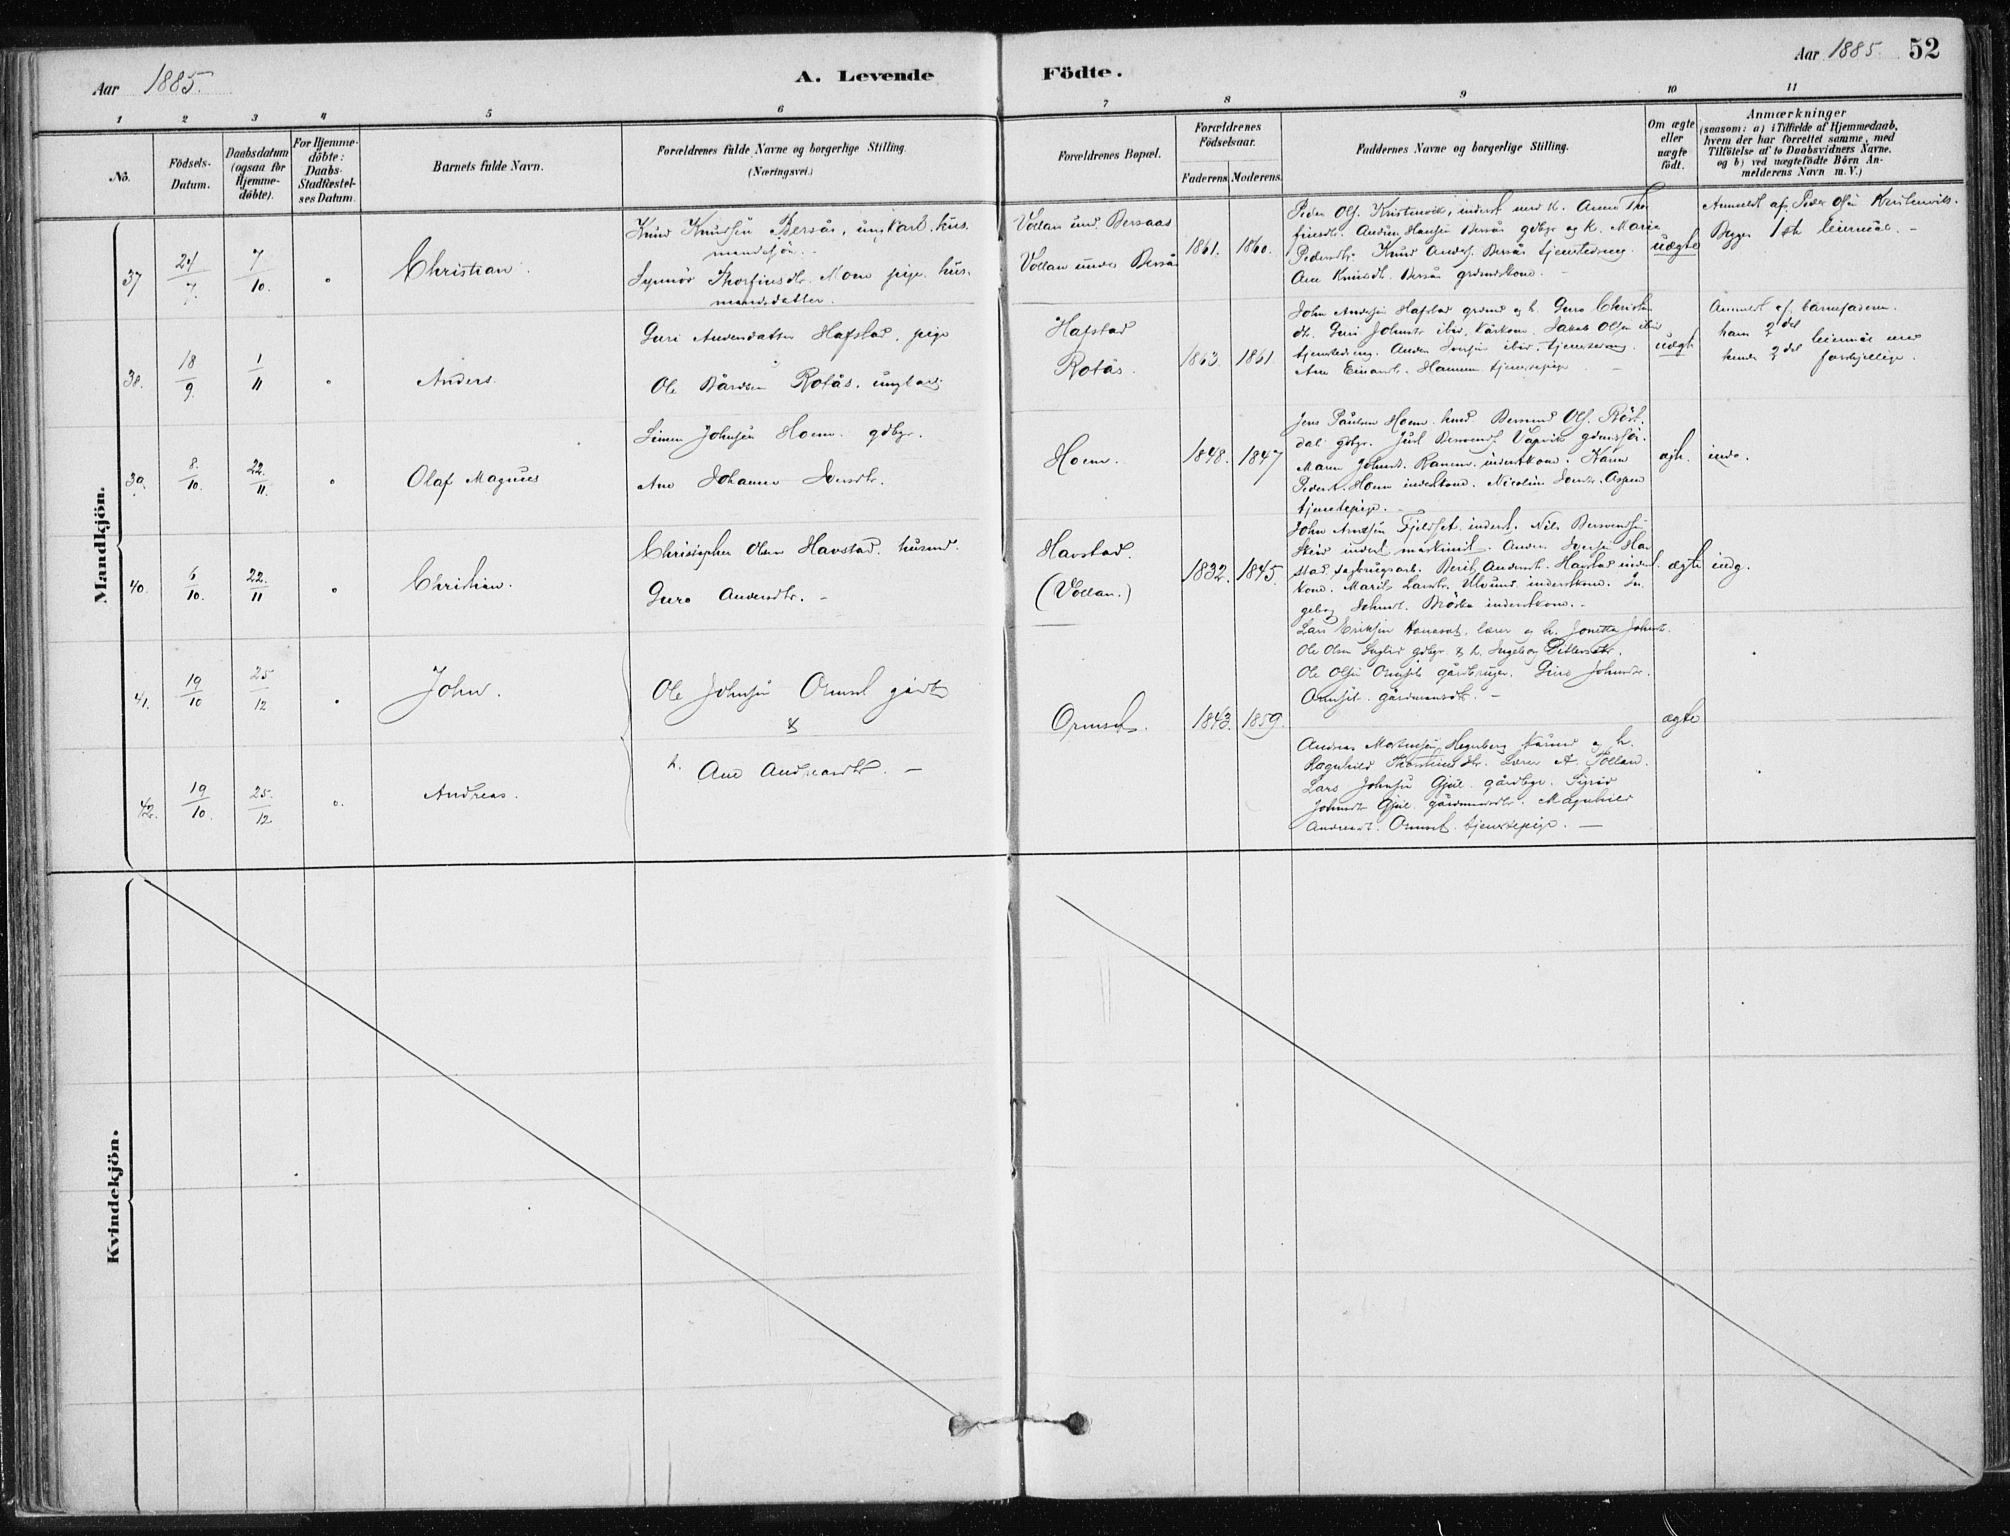 Aar 1885.
A. Levende
Födte.
Aar 1885. 52
1 2 3 4 5 6 7 8 9 10 11
No.
Födsels-
Datum.
Daabsdatum
(ogsaa for
Hjemme-
döbte).
For Hjemme-
döbte:
Daabs-
Stadfæstel-
ses Datum.
Barnets fulde Navn.
Forældrenes fulde Navne og borgerlige Stilling.
(Næringsvei.)
Forældrenes Bopæl.
Forældrenes
Födselsaar.
Faderens. Moderens.
Faddernes Navne og borgerlige Stilling.
Om ægte
eller
uægte
födt.
Anmærkninger
(saasom: a) i Tilfælde af Hjemmedaab,
hvem der har forrettet samme, med
Tilföielse af to Daabsvidners Navne,
og b) ved uægtefödte Börn An-
melderens Navn m. V.)
Mandkjön.
37
7/10
Christian.
Knud Knudsen Bersås, ungkarl, hus-
mandssön.
Synnör Thorfinsdtr. Moen pige, hus-
mandsdatter.
Vollan und. Bersaas
Vollan under Bersås
1861. 1860.
Peder Ols. Kristenvik, inderst med k. Anne Thor
finsdtr. Anders Hansen Bersås gdbgr og k. Marie
Pedersdtr. Knud Anders. Bersås tjenestedreng.
Ane Knudsdtr. Bersås grdmdskone.
uægte
Anmeldt af Peder Olsen Kristenvik.
Begges 1ste leiermål.
38.
18/9.
1/11
Anders.
Guri Andersdatter Hafstad, pige
Ole Bårdsen Rotås, ungkarl.
Hafstad
Rotås.
1863 1861
John Andersen Hafstad grdmd og h. Guro Christen
dtr. Guri Johnsdtr ibid.
tjenestedreng. Anders Iversen ibid. tjenestedreng
Ane Einarsdtr. Hammer tjenestepige
uægte
Anmeldt af barnefaderen.
hans 2det
hendes 2det leiermål med
forskjellige.
39.
8./10.
22./11.
Olaf Magnus
Simen Johnsen Hoem. gdbgr.
Ane Johanne Iversdtr.
Hoem.
1848. 1847
Jens Paulsen Hoem. hmd. Bersvend Ols. Röst-
dal gdbgr.
Maren Johnsdtr. Ranem. inderstkone. Karen
Pedersdtr. Hoem inderstkone. Nicoline Aspen
tjenestepige.
ægte.
indg.
40.
6/10.
22./11
Christian.
Christopher Olsen Havstad. husmd.
Guro Andersdtr.
Havstad.
(Vollan.)
1832. 1845.
John Arntsen Fjeldset inderst. Nils Bersvendsen
Skeid inderst maskinist. Anders Iversen Hav
stad sagbrugsarb. Berit Andersdtr. Havstad inderst
kone. Marit Larsdtr. Ulvund inderstkone. In
geborg Johnsdtr. inderstkone.
ægte indg.
41.
19/10
25/12
John.
Ole Johnsen Ormset gårdb
&
h. Ane Andreasdtr.
Ormset.
1843. 1859.
Lars Eriksen lærer og h. Jonetta Johnsdtr.
Ole Olsen gdbgr & h. Ingeborg
Ole Olsen Ormset gårdbruger. Guro Johnsdtr.
Ormset. gårdmandsdtr.
ægte
42.
19/10.
25./12
Andreas.
Andreas Mortensen Hegerberg og h.
Ragnhild Thorstensdtr. Lærer A. Tollan.
Lars Johnsen Gjul. gårdbgr. Sigrid
Johnsdtr Gjul. gårdmandsdtr. Magnhild
Andreasdtr. Ormset. tjenestepige.
Kvindekjön.